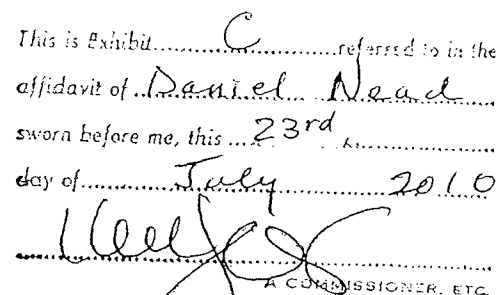 This is Exhibit.........C.........referred to in the
affidavit of Daniel Nead
sworn before me, this 23rd
day of July 2010
A COMMISSIONER, ETC.